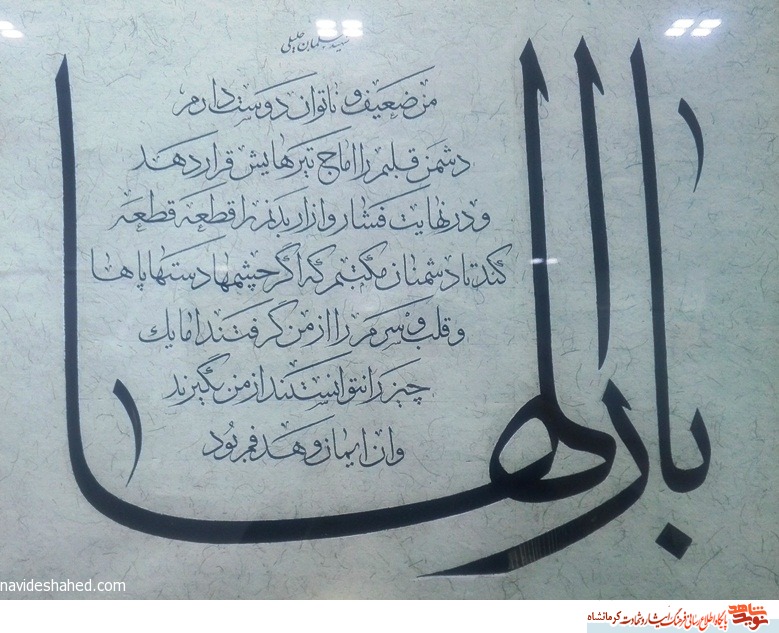 شهید سلمان جلیلی
بارالها
من ضعیف و ناتوان دوست دارم
دشمن قلبم را اماج تیرهایش قرار دهد
و در نهایت فشار و ازار بدنم را قطعه قطعه
کند تا دشمنان مکتبم که اگر چشمها دستها پاها
و قلب و سرم را از من گرفتند اما یک
چیز را نتوانستند از من بگیرند
و ان ایمان و هدفم بود
navideshahed.com
نوید شاهد پایگاه اطلاع رسانی فرهنگ ایثار و شهادت کرمانشاه